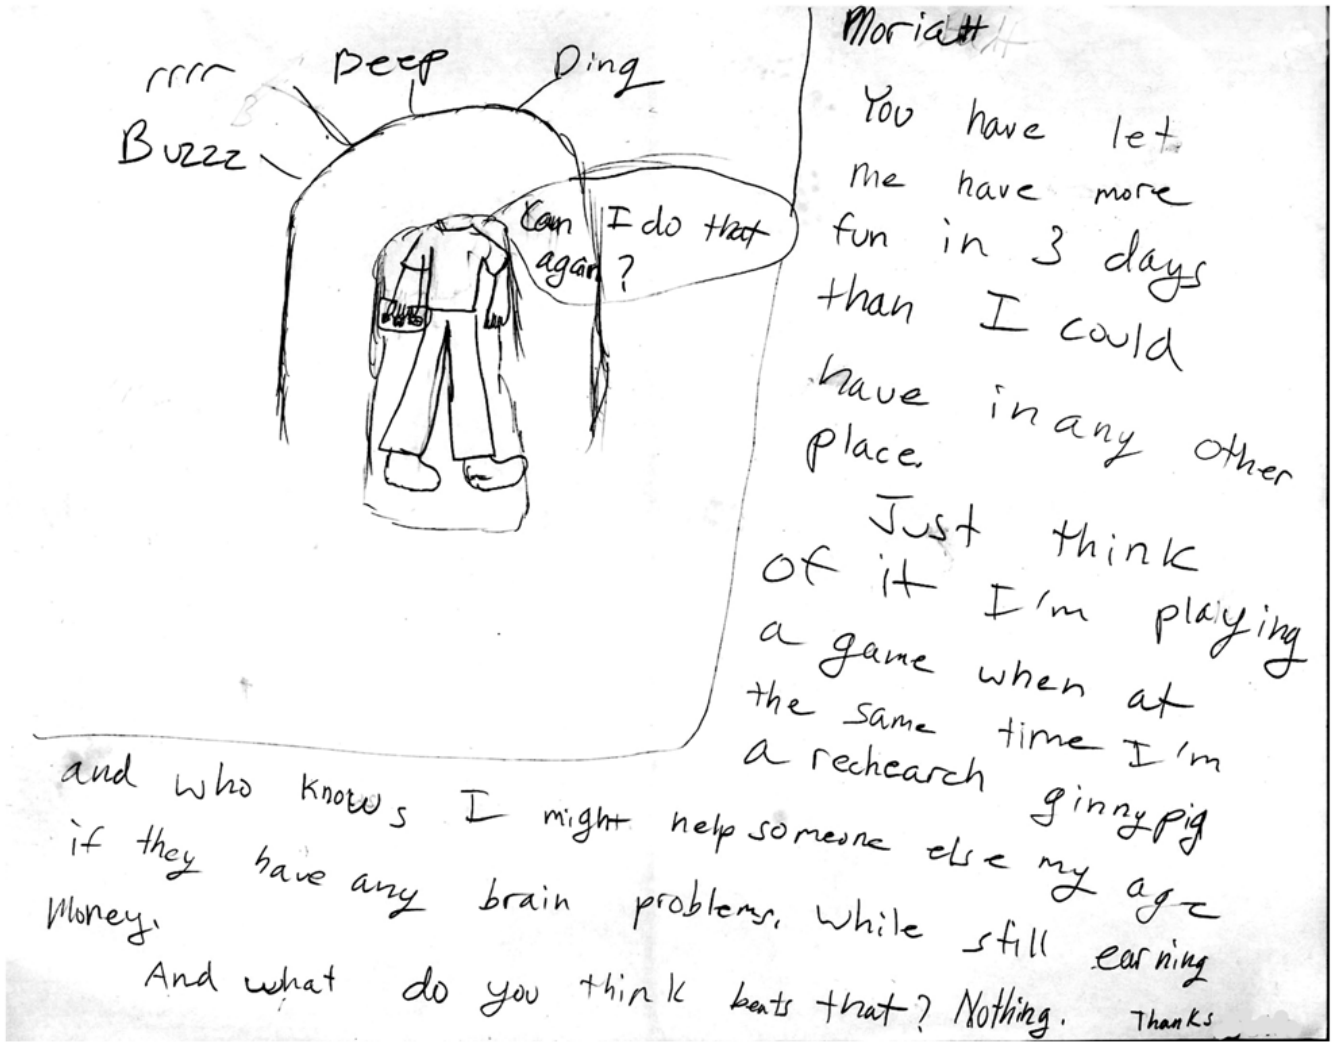 rrrr
Beep
Ding
Buzzz
Can I do that
again ?
Moriah
You have let
me have more
fun in 3 days
than I could
have in any other
place.
Just think
of it I'm playing
a game when at
the same time I'm
a rechearch ginnypig
and who knows I might help someone else my age
if they have any brain problems. while still earning
money.
And what do you think beats that? Nothing. Thanks